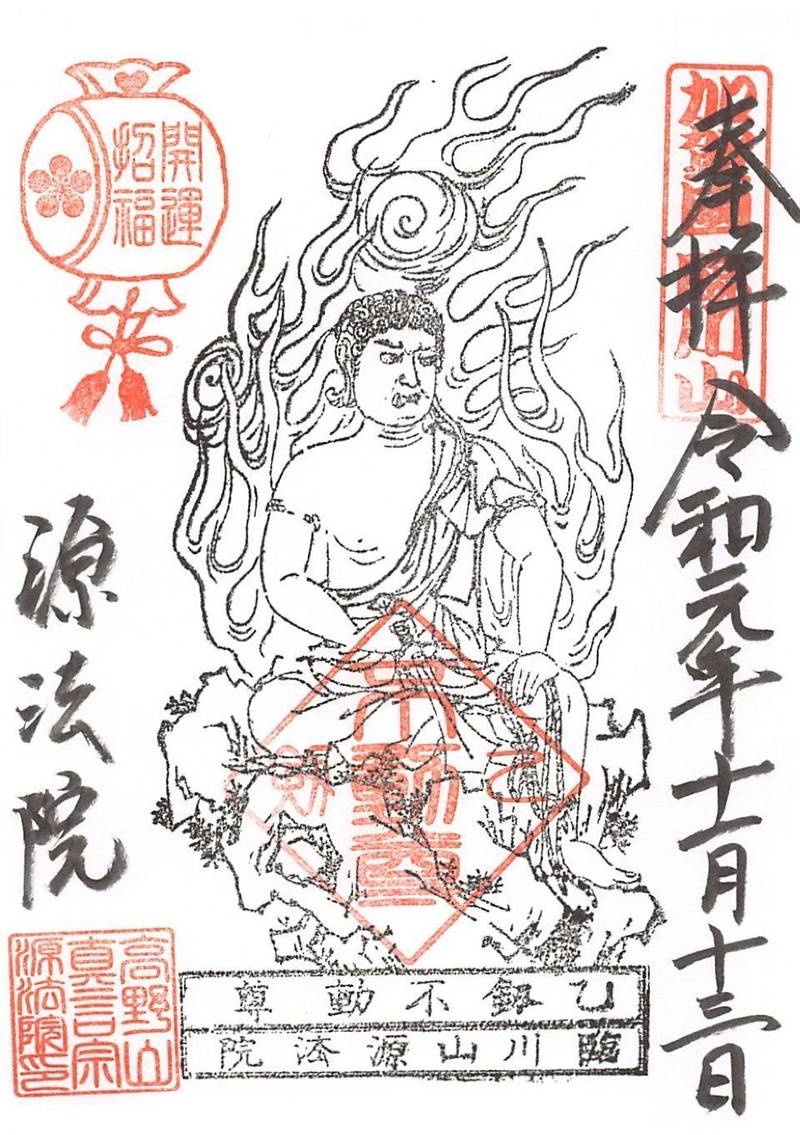 奉拝 令和元年十一月十三日
加賀國臨川山
開運
招福
不動尊
乙
剱
乙釼不動尊
臨川山源法院
源法院
高野山
真言宗
源法院印